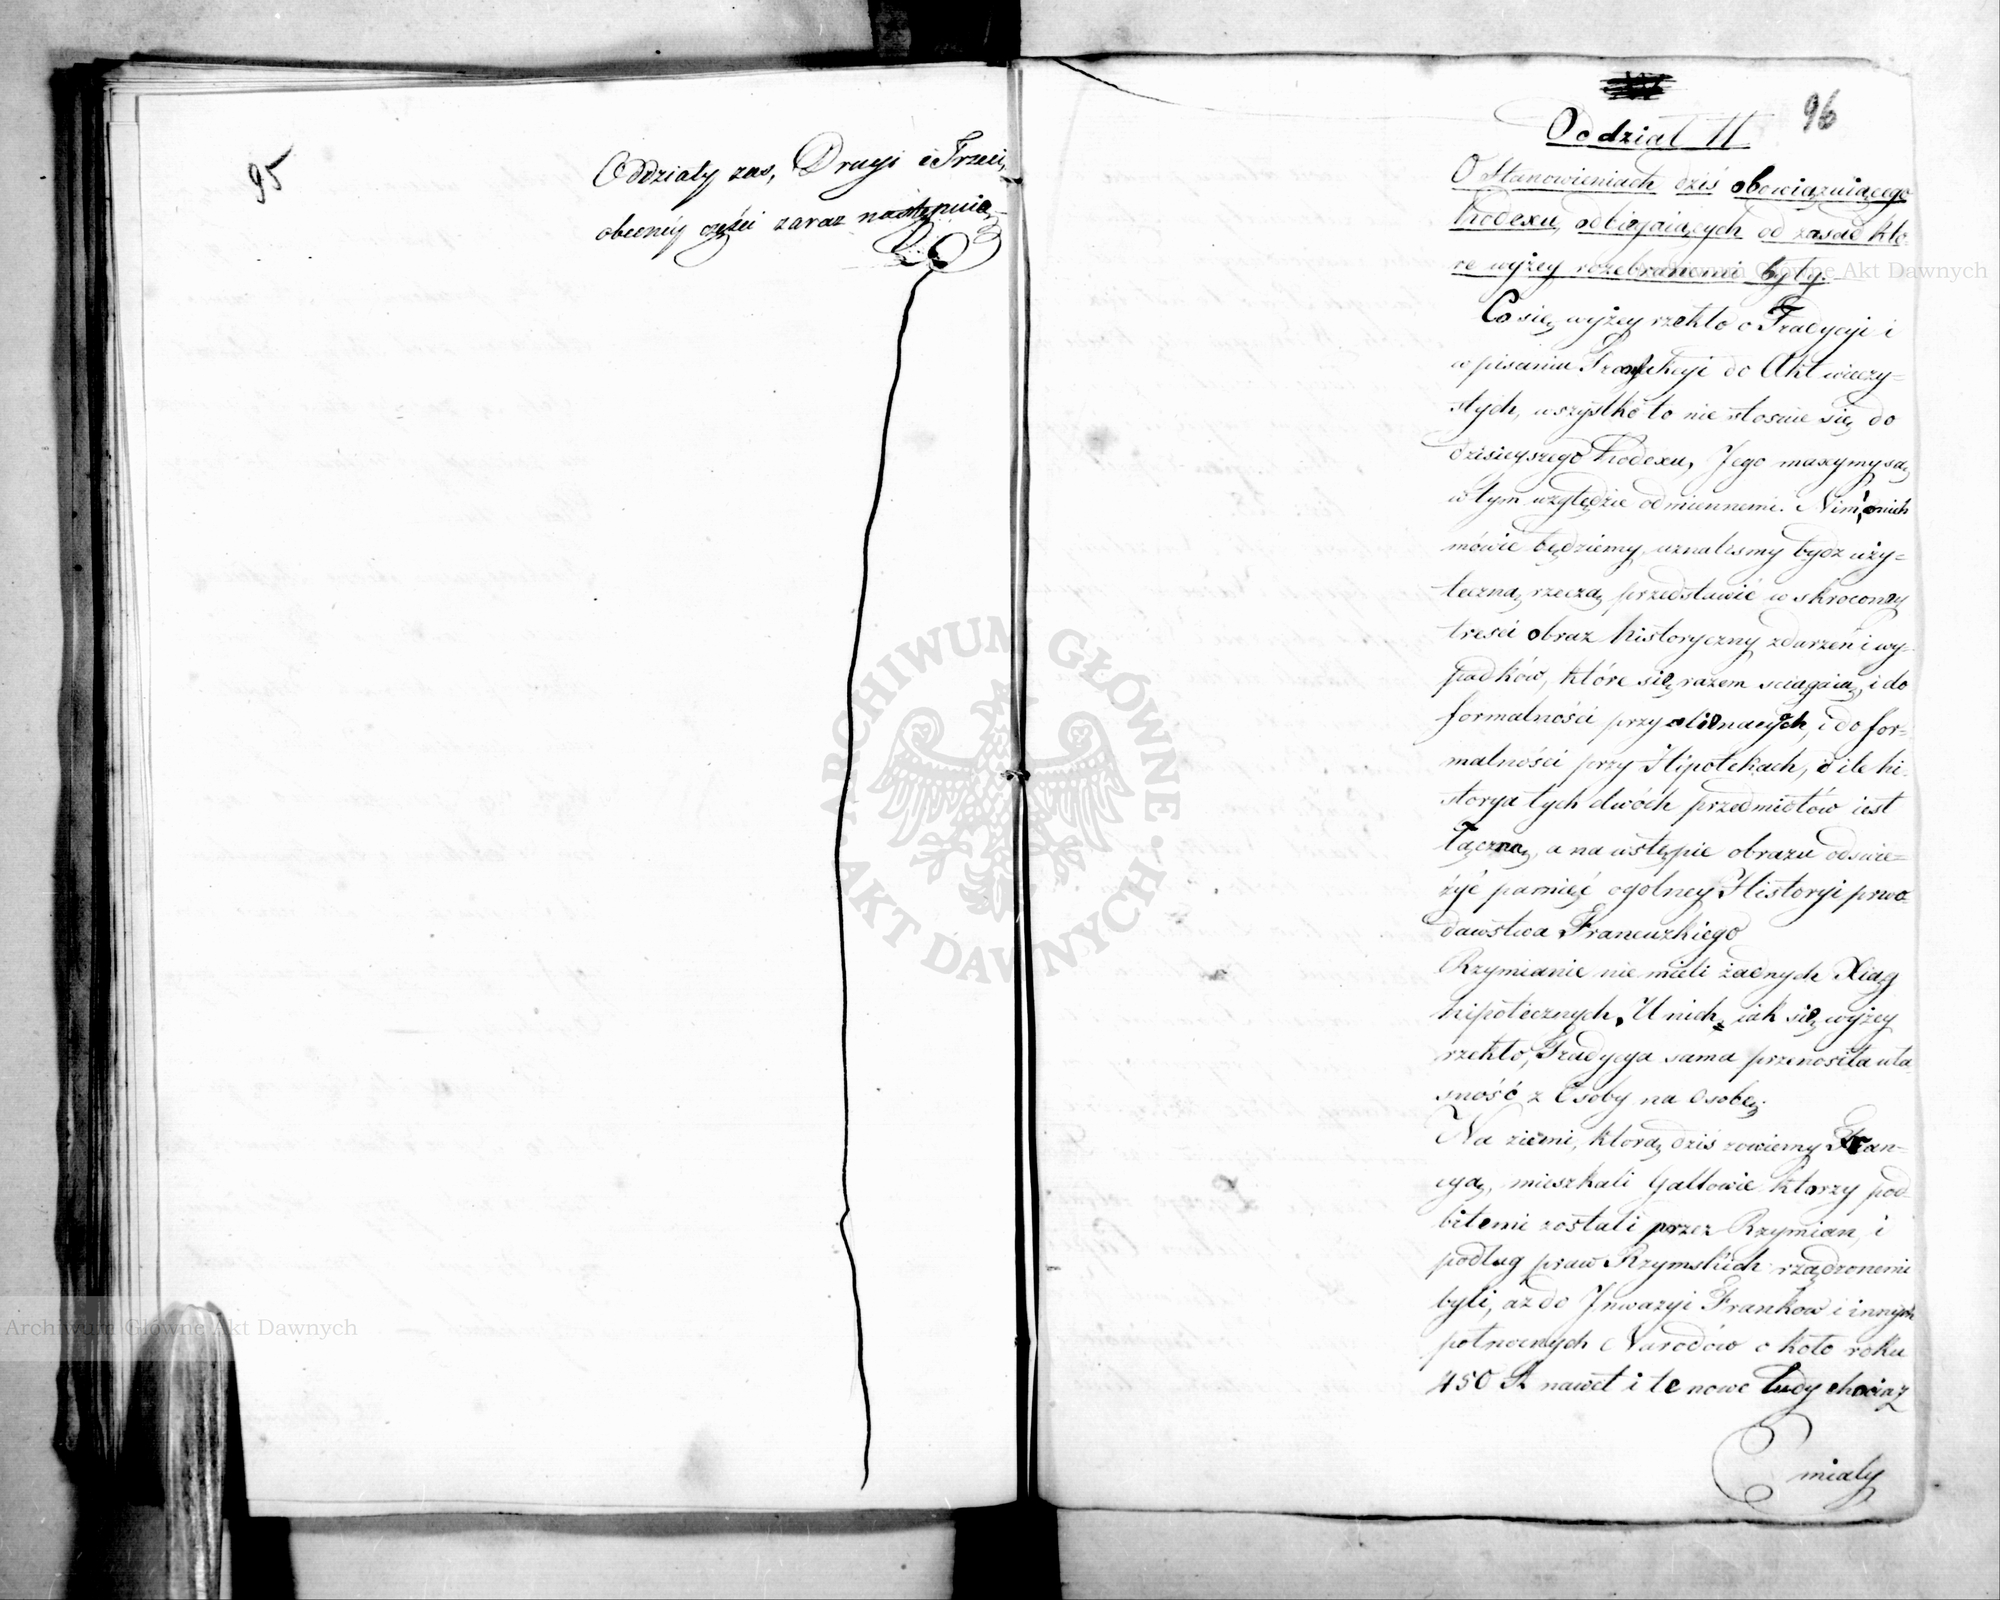 95
Oddziały zas, Drugi i Trzeci,
obecnéy części zaraz następuią
96
Oddział II
O Stanowieniach dziś obowiązuiącego
Kodexu, odbiegaiących od zasad któ-
re wyżey rozebranemi były.
Co się wyżey rzekło o Tradycyi i
wpisaniu Tranzakcyi do Akt wieczy-
stych, wszystko to nie stosuie się do
dzisieyszego Kodexu, Jego maxymy są
w tym względzie odmiennemi. Nim o nich
mówić będziemy, uznaliśmy bydz uży-
teczną rzeczą przedstawić w skroconey
tresci obraz historyczny zdarzeń i wy-
padków, które się razem sciągaią i do
formalności przy alienacyach, i do for-
malności przy Hipotekach, o ile hi-
storya tych dwóch przedmiotów iest
łączna, a na wstępie obrazu odswie-
żyć pamięć ogolney Historyi prwo-
dawstwa Francuzkiego
Rzymianie nie mieli żadnych Xiąg
hipotecznych. U nich, iak się wyżey
rzekło, Tradycya sama przenosiła wła-
sność z Osoby na Osobę.
Na ziemi, którą dziś zowiemy Fran-
cyą, mieszkali Gallowie ktorzy pod-
bitemi zostali przez Rzymian, i
podług praw Rzymskich rządzonemi
byli, az do Jnwazyi Franków i innych
północnych Narodów około roku
450 A nawet i te nowe Ludy chociaż
miały
Archiwum Główne Akt Dawnych
Archiwum Główne Akt Dawnych
ARCHIWUM GŁÓWNE AKT DAWNYCH